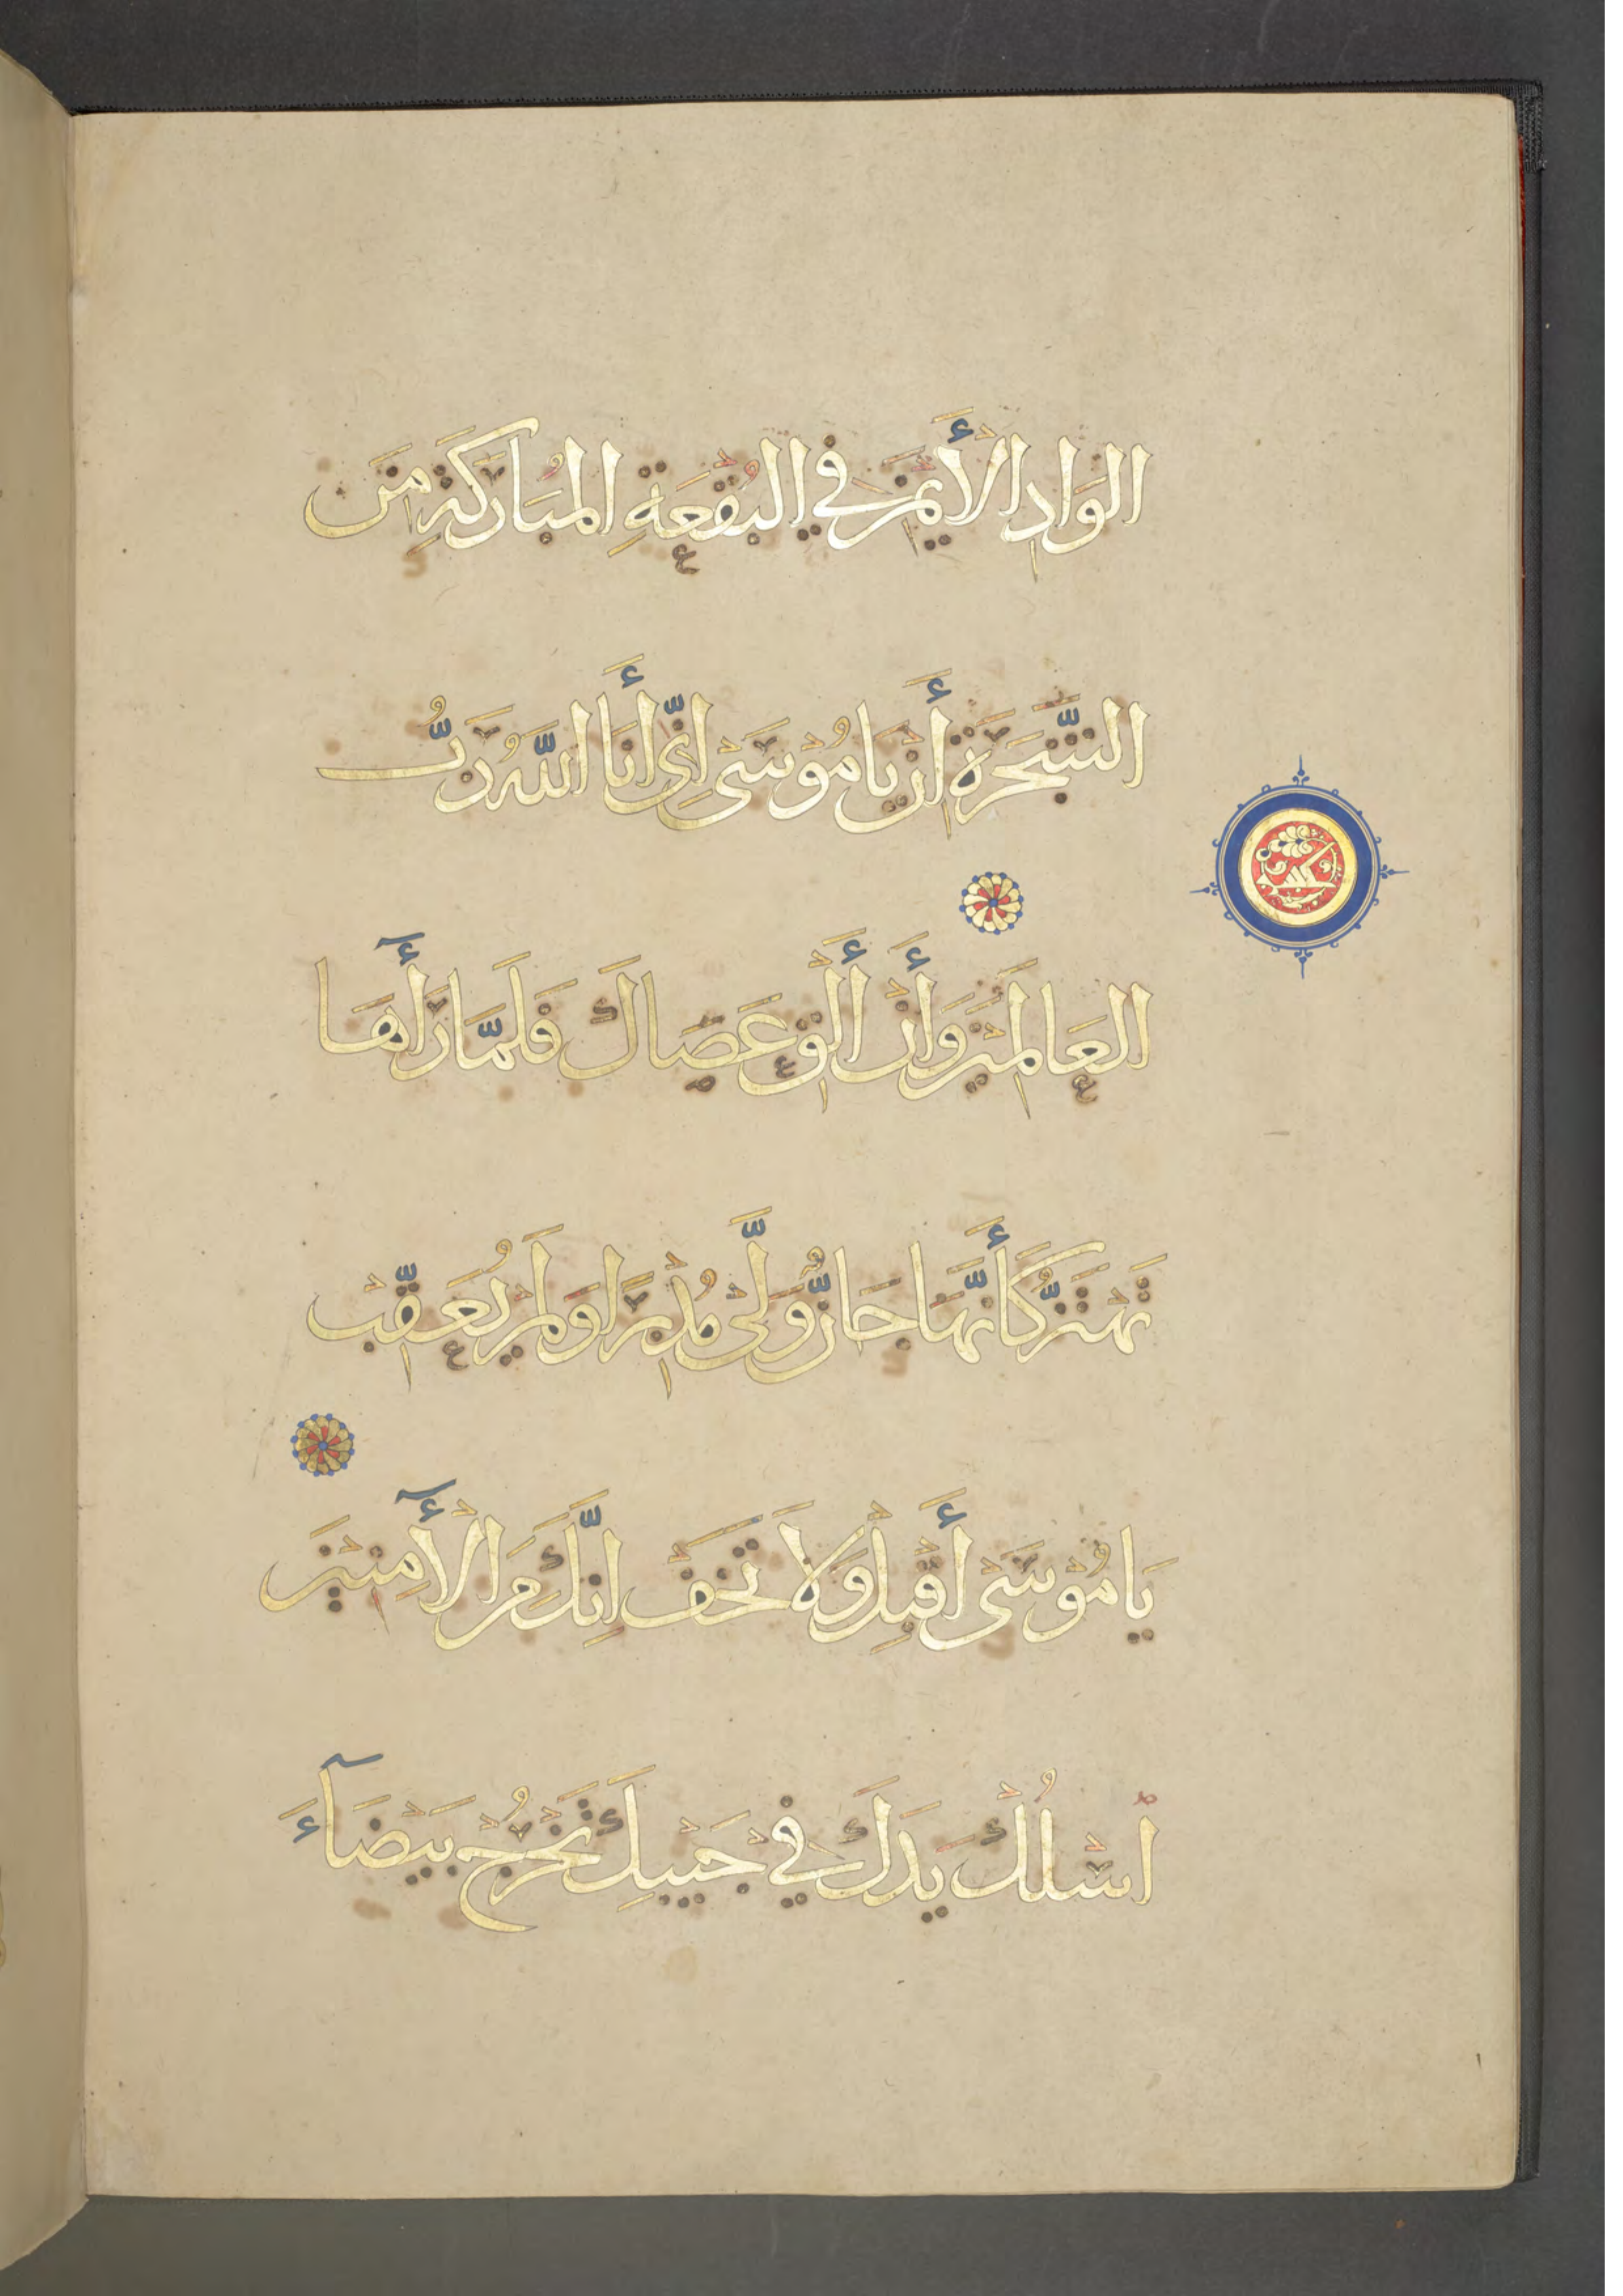 الوَادِ الأَيْمَنِ فِي البُقْعَةِ المُبَارَكَةِ مِنَ
الشَّجَرَةِ أَن يَا مُوْسَى اِنِّي أَنَا اللَّهُ رَبُّ
العَالَمِيْنَ وَأَنْ أَلْقِ عَصَاكَ فَلَمَّا رَأٓهَا
تَهْتَزُّ كَأَنَّهَا جَانٌّ وَلَّى مُدْبِرًا وَلَمْ يُعَقِّبْ
يَا مُوْسَى أَقْبِلْ وَلَا تَخَفْ اِنَّكَ مِنَ الأٓمِنِيْنَ
اسْلُكْ يَدَكَ فِي جَيْبِكَ تَخْرُجْ بَيْضَآءَ